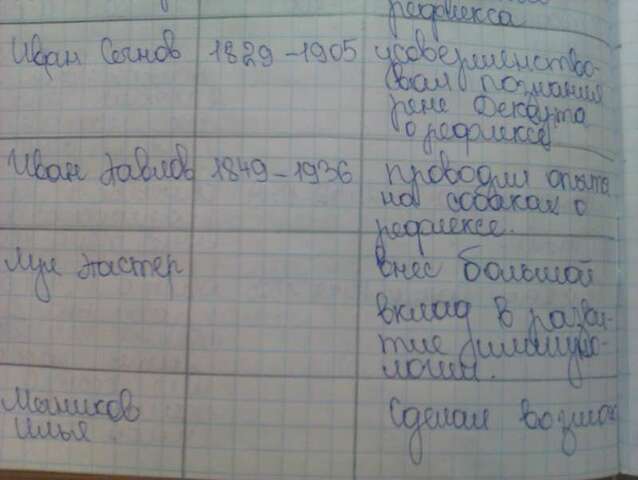 рефлекса
Иван Сечнов 1829-1905 усовершенство-
вал познания
рене Декарта
о рефлексе
Иван Павлов 1849-1936 проводил опыты
на собаках о
рефлексе.
Луи Пастер внес большой
вклад в разви-
тие иммуно-
логии.
Мычиков сделал возмож
Илья